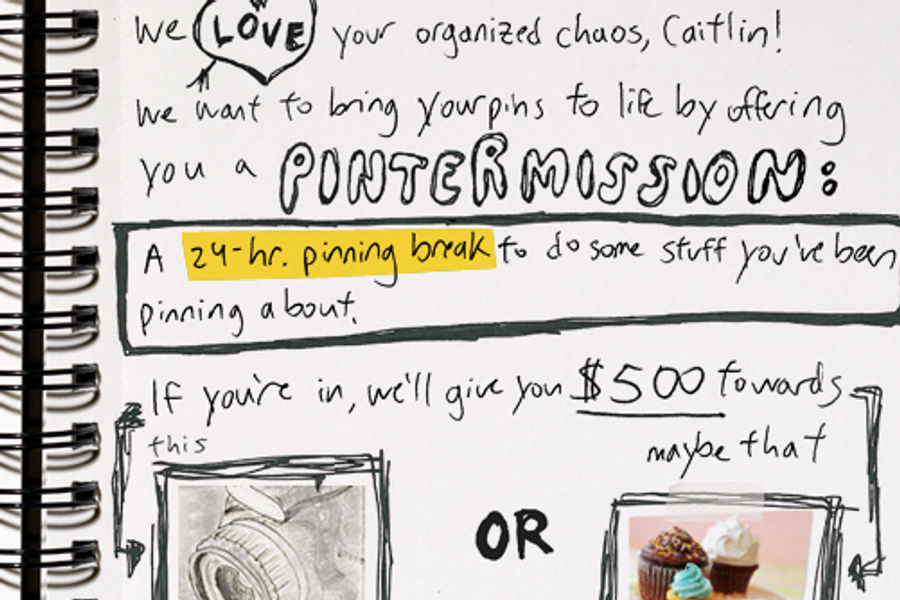 We LOVE your organized chaos, Caitlin!
We want to bring your pins to life by offering
you a PINTERMISSION:
A 24-hr. pinning break to do some stuff you've been
pinning about.
If you're in, we'll give you $500 towards
this
maybe that
OR